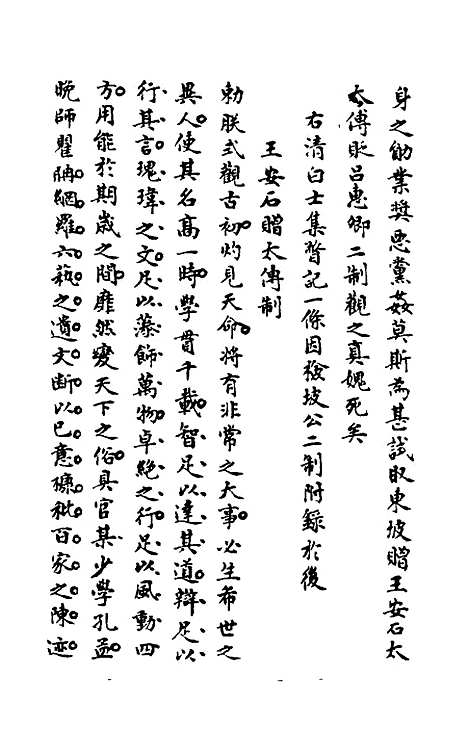 身之勛業奨惡黨姦莫斯為甚試取東坡贈王安石太
太傅貶呂惠卿二制觀之真媿死矣
右清白士集瞥記一條因檢坡公二制附錄於後
王安石贈太傅制
勅朕式觀古初灼見天命將有非常之大事必生希世之
異人使其名髙一時學貫千載智足以達其道辯足以
行其言瑰瑋之文足以藻飾萬物卓絶之行足以風動四
方用能於期歲之間靡然變天下之俗具官某少學孔孟
晚師瞿聃網羅六藝之遺文斷以已意糠粃百家之陳迹